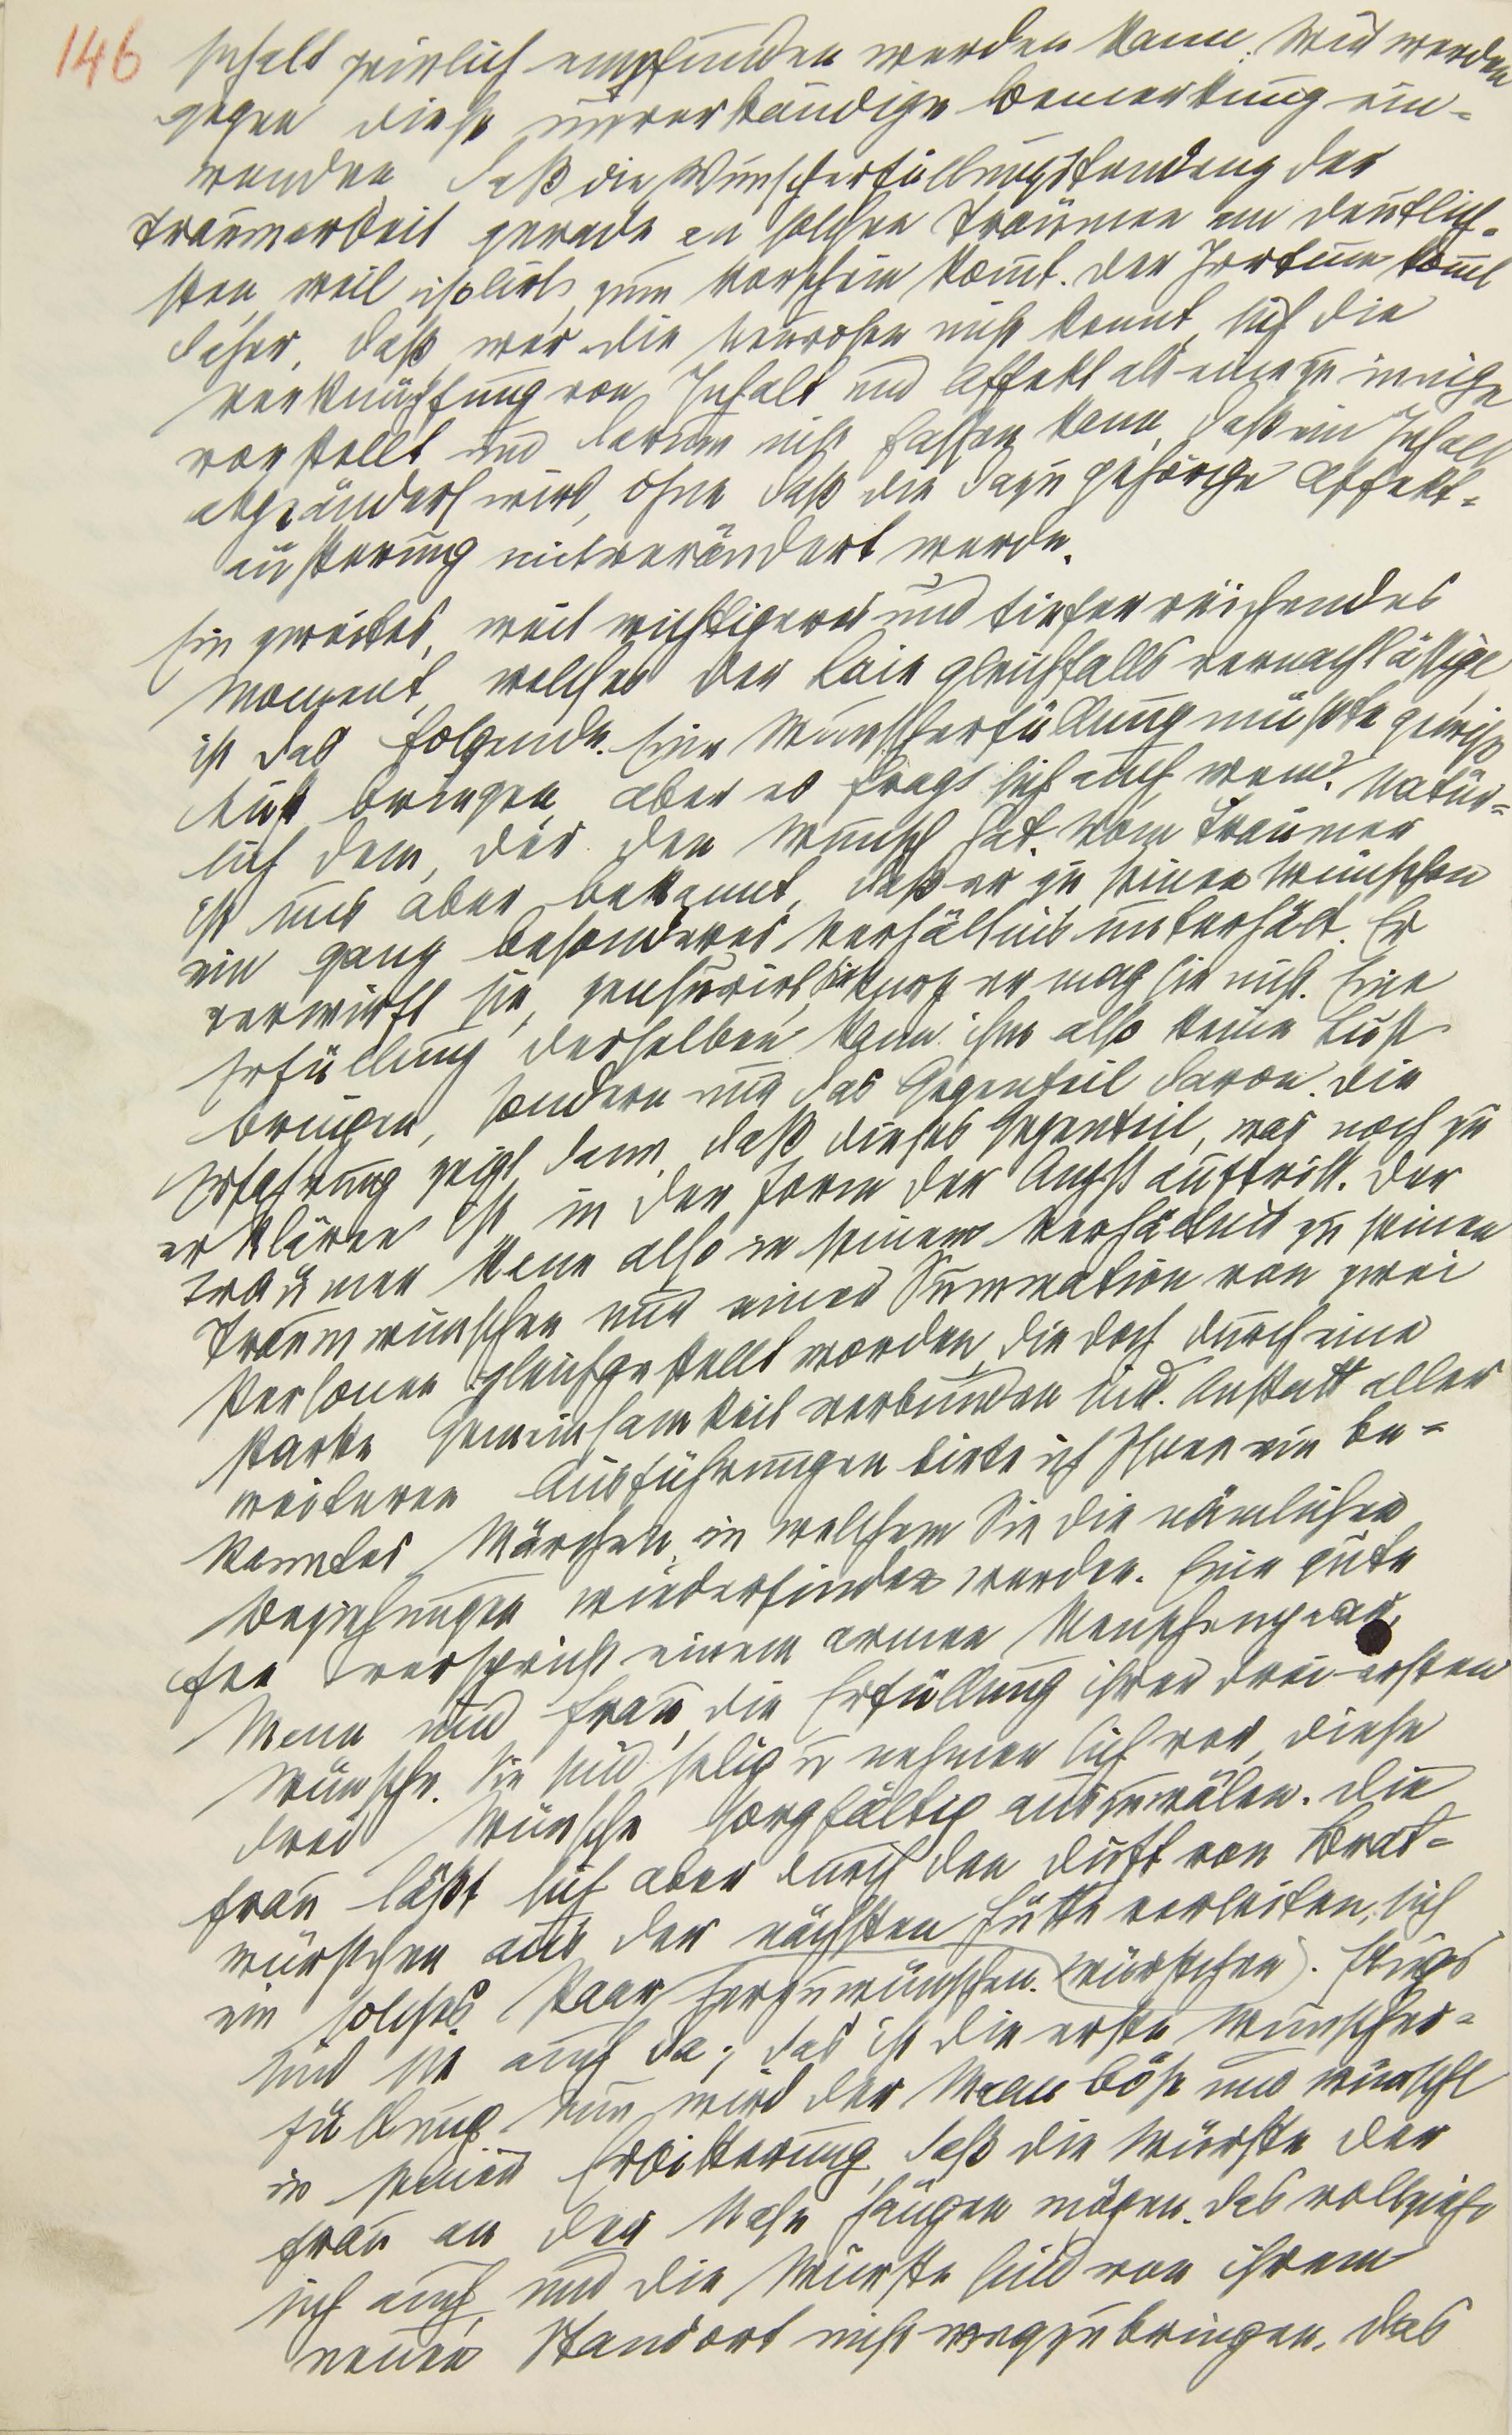 146
Inhalt peinlich empfunden werden kann. Wir werden
gegen diese unverständige Bemerkung ein-
wenden daß die Wunscherfüllungstendenz der
Traumarbeit gerade in solchen Träumen am deutlich-
sten, weil isolirt, zum Vorschein kom̄t. Der Irrtum kom̄t
daher, daß, wer die Neurosen nicht kennt, sich die
Verknüpfung von Inhalt und Affekt als eine zu innige
vorstellt und darum nicht fassen kann, daß ein Inhalt
abgeändert wird, ohne daß die dazu gehörige Affekt-
äußerung mitverändert werde.
Ein zweites, weit wichtigeres und tiefer reichendes
Moment, welches der Laie gleichfalls vernachläßigt,
ist das folgende. Eine Wunscherfüllung müßte gewiß
Lust bringen, aber es fragt sich auch, wem? Natür-
lich dem, der den Wunsch hat. Vom Träumer
ist uns aber bekannt, daß er zu seinen Wünschen
ein ganz besonderes Verhältnis unterhält. Er
verwirft sie, zensurirt sie kurz er mag sie nicht. Eine
Erfüllung derselben kann ihm also keine Lust
bringen, sondern nur das Gegenteil davon. Die
Erfahrung zeigt dann, daß dieses Gegenteil, was noch zu
erklären ist, in der Form der Angst auftritt. Der
Träumer kann also in seinem Verhältnis zu seinen
Traumwünschen nur einer Summation von zwei
Personen gleichgestellt werden, die doch durch eine
starke Gemeinsamkeit verbunden sind. Anstatt aller
weiteren Ausführungen biete ich Ihnen ein be-
kanntes Märchen, in welchem Sie die nämlichen
Beziehungen wiederfinden werden. Eine gute
Fee verspricht einem armen Menschenpaar,
Mann und Frau, die Erfüllung ihrer drei ersten
Wünsche. Sie sind selig u nehmen sich vor, diese
drei Wünsche sorgfältig auszuwälen. Die
Frau läßt sich aber durch den Duft von Brat-
würstchen aus der nächsten Hütte verleiten, sich
ein solches Paar herzuwünschen. (Würstchen). Flugs
sind sie auch da; das ist die erste Wunscher-
füllung. Nun wird der Mann böse und wünscht
in seiner Erbitterung, daß die Würste der
Frau an der Nase hängen mögen. Das vollzieht
sich auch und die Würste sind von ihrem
neuen Standort nicht wegzubringen, das